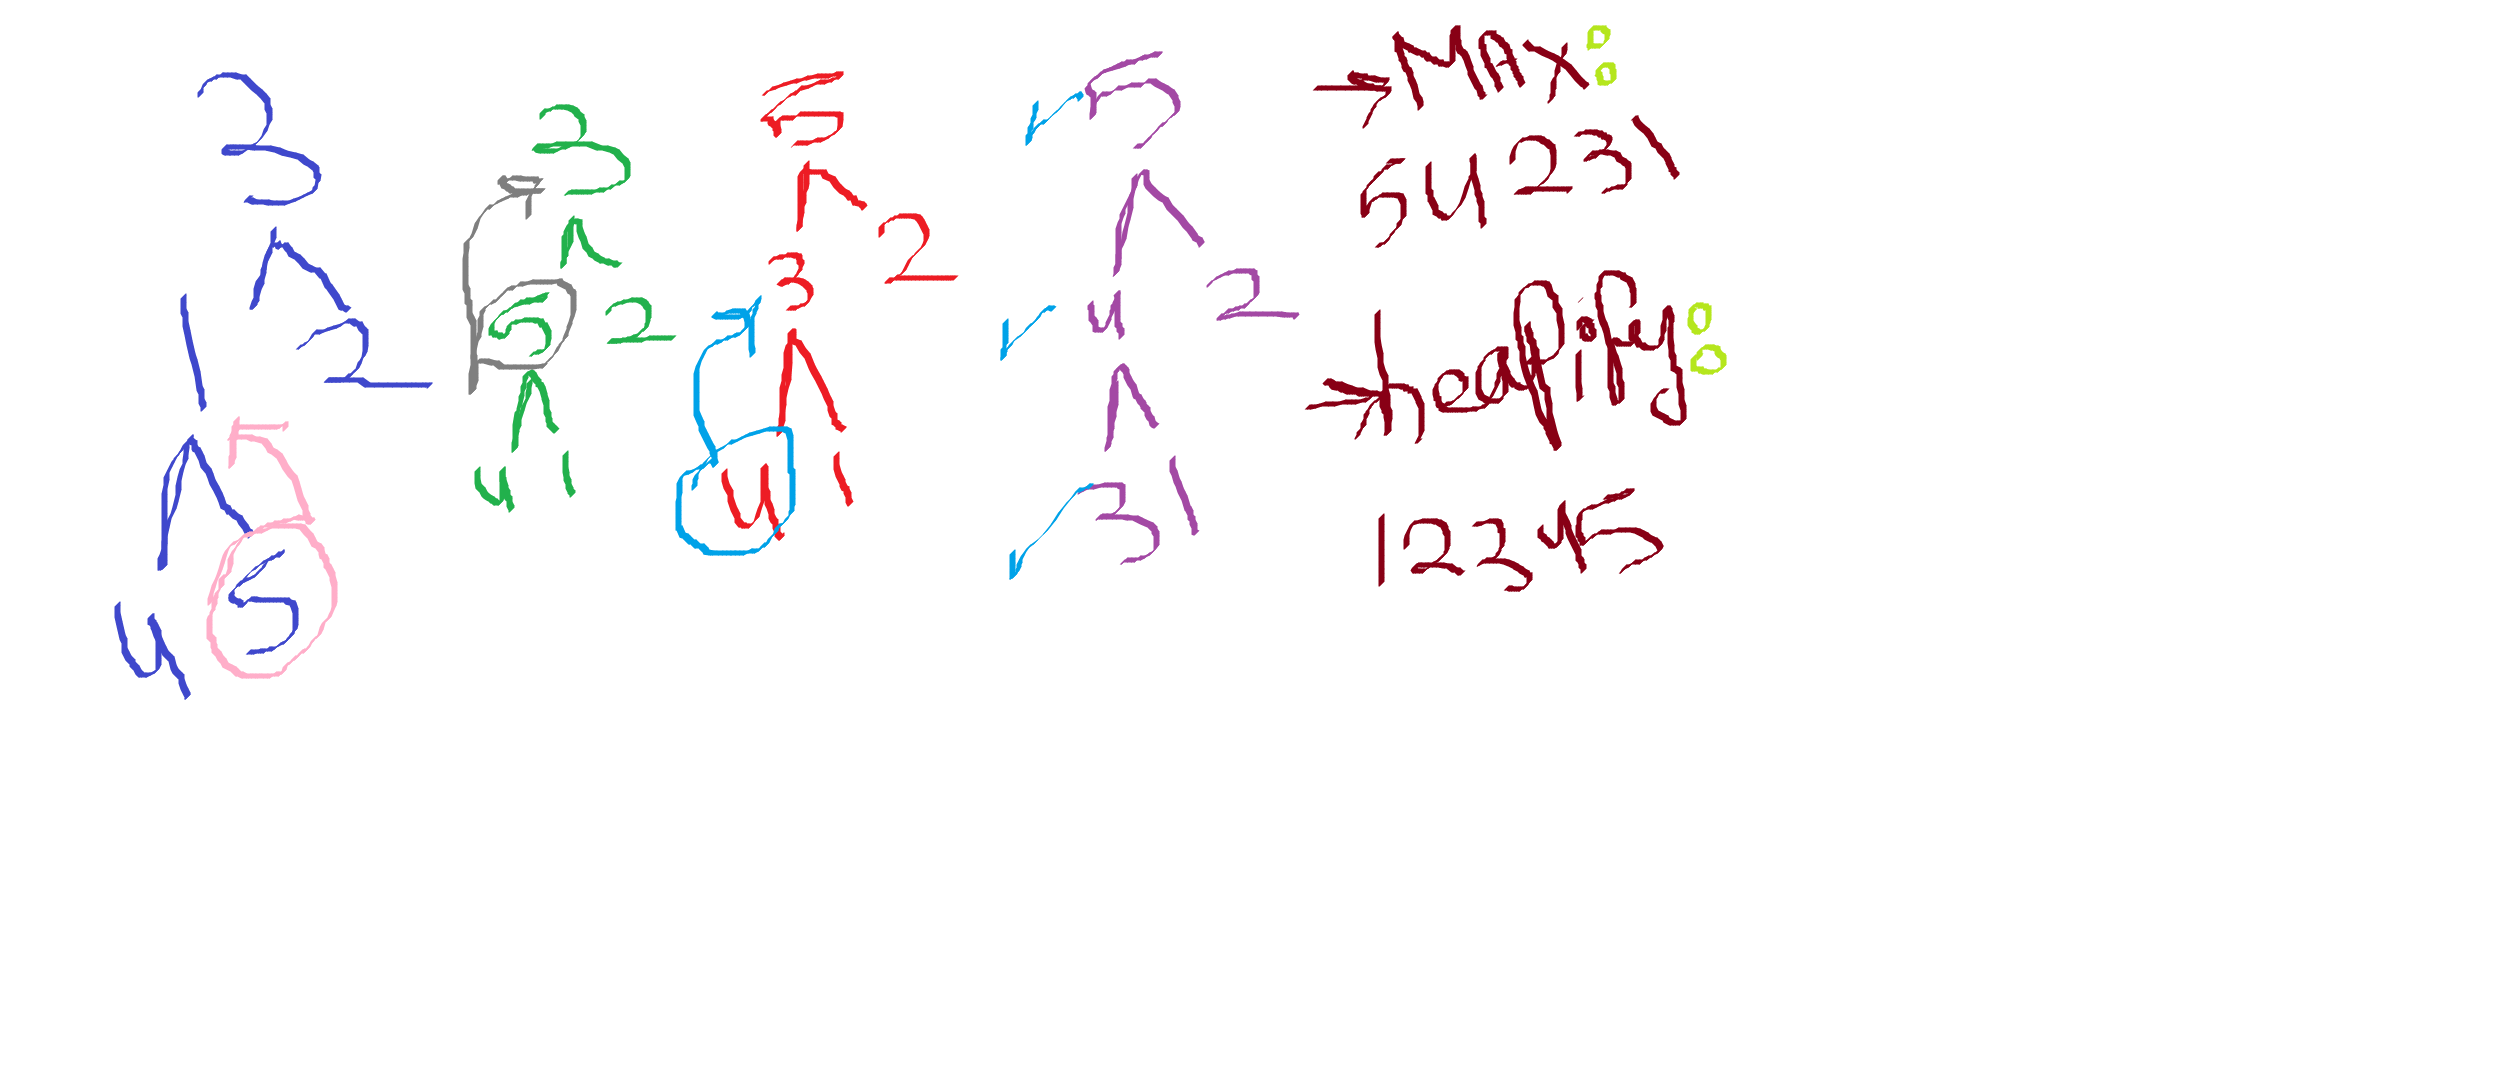 3
1 2
4 5
3
5 2
4 1
5
3 2
4 1
5
4 2
3 1
→MAX:
54231
→heapify:
12345